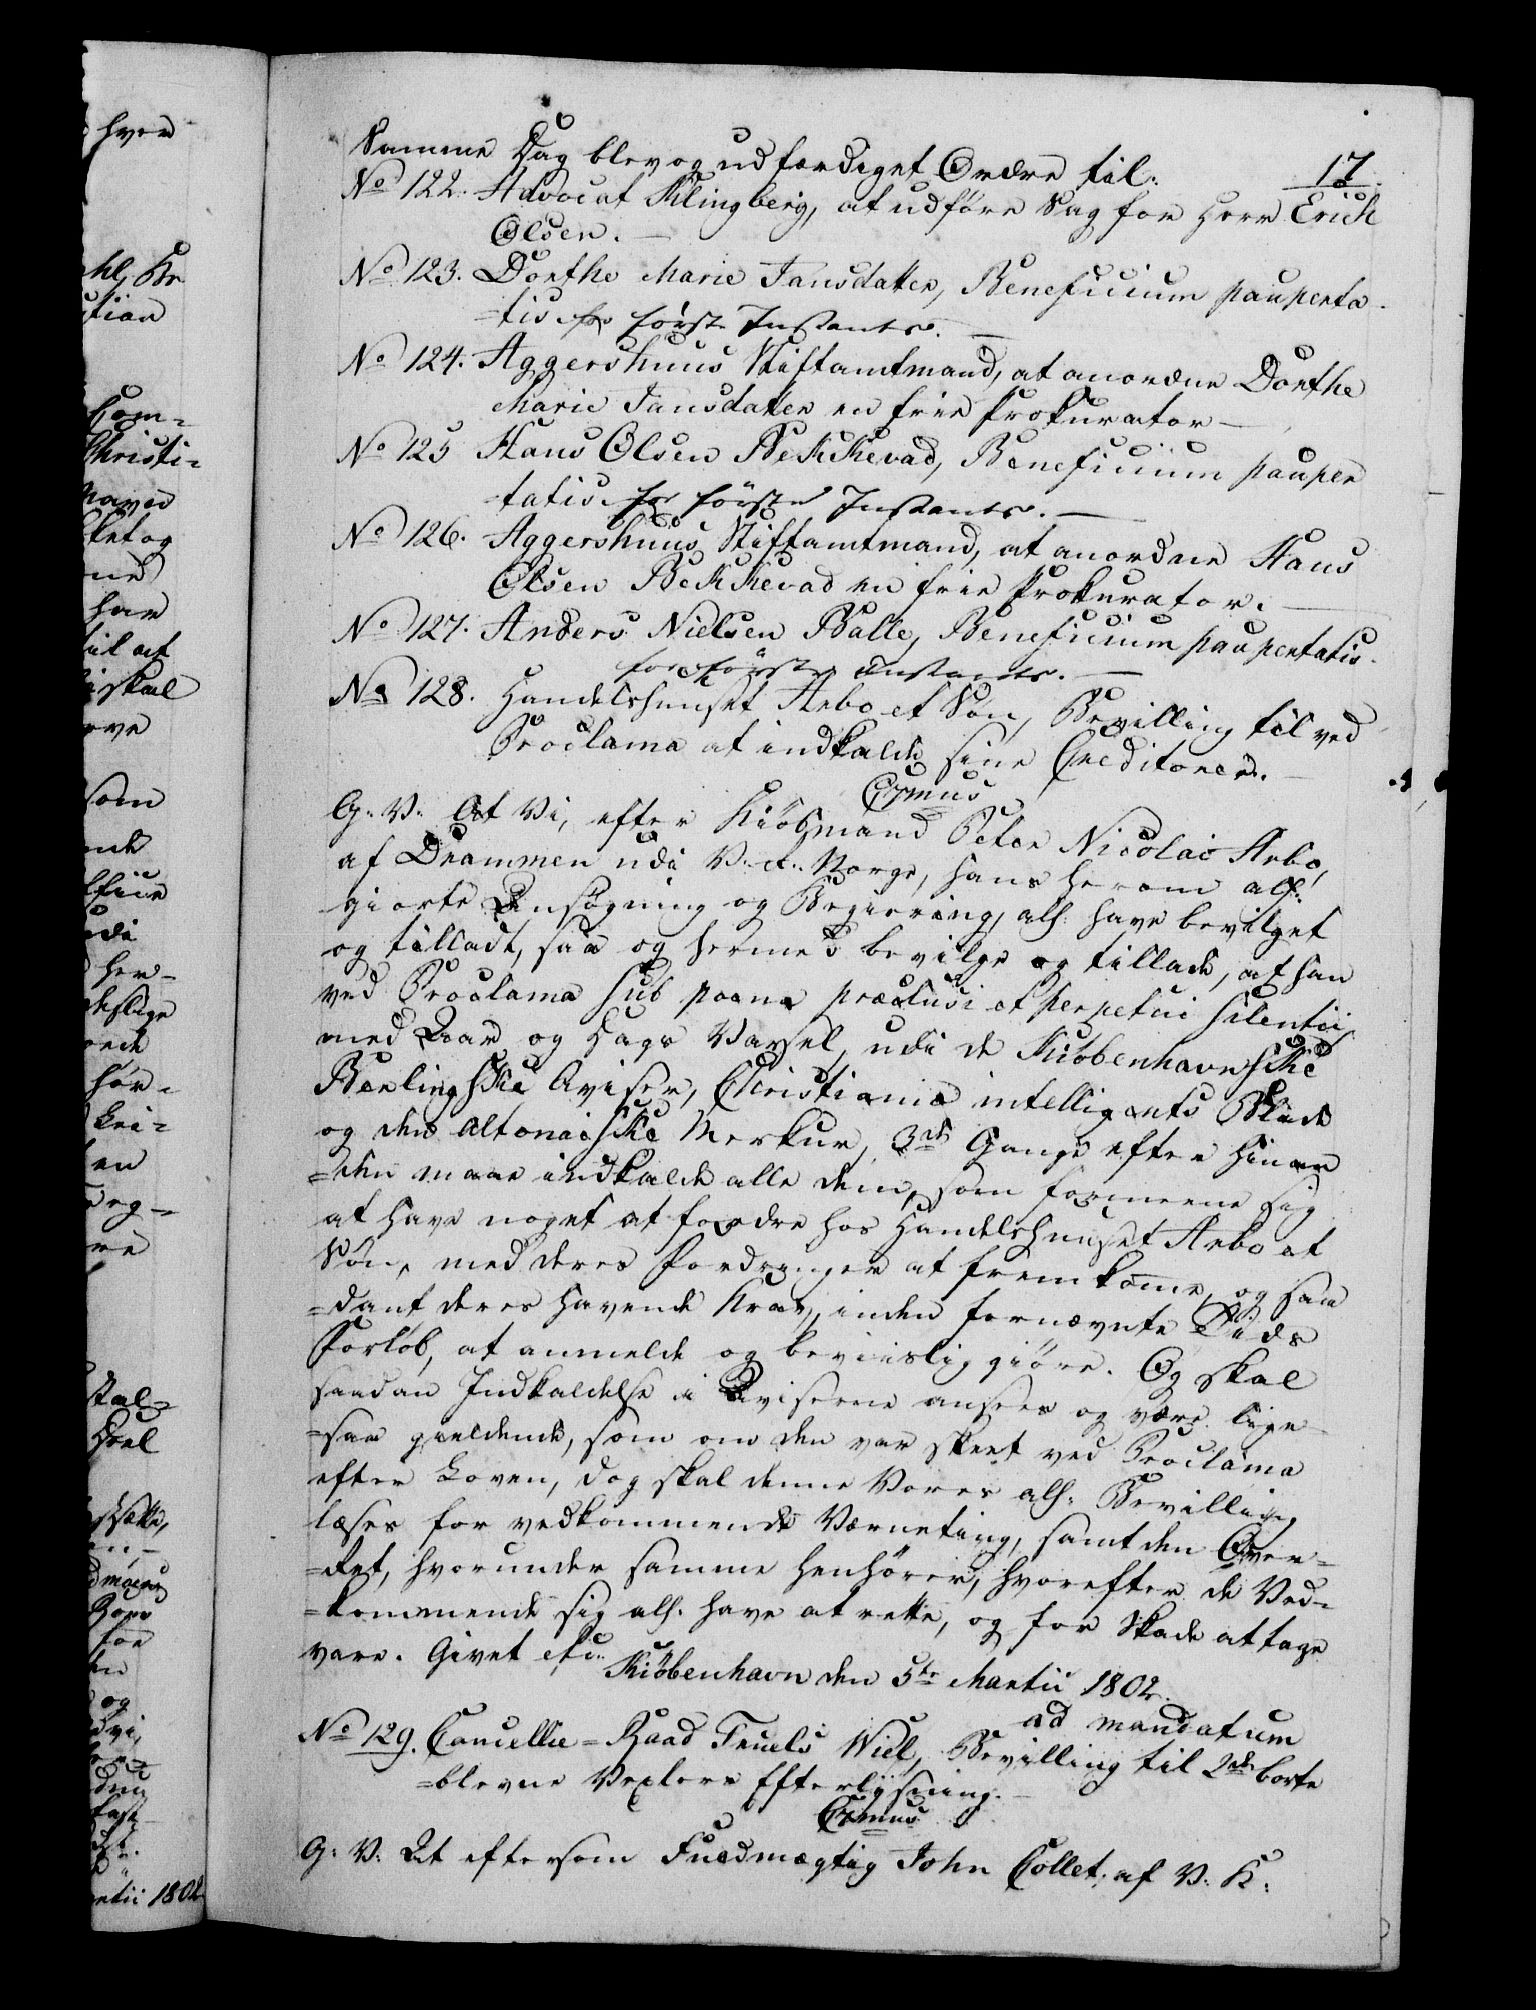 Samme Dag blev og udfærdiget Ordre til:
17.
No 122. Advocat Klingberg, at udföre Sag for Herr Erich
Olsen. —
No 123. Dorthe Marie Jansdatter, Beneficium pauperta
=tis for förste Instants. —
No 124. Aggershuus Stiftamtmand, at anordne Dorthe
Marie Jansdatter en frie Prokurator —
No 125 Hans Olsen Bekkevad, Beneficium pauper
tatis for förste Instants. —
No 126. Aggershuus Stiftamtmand, at anordne Hans
Olsen Bekkevad en frie Prokurator. —
No 127. Anders Nielsen Balle, Beneficium paupertatis
for förste Instants. —
No 128. Handelshuuset Arbo et Sön, Bevilling til ved
Proclama at indkalde sine Creditorer. —
G: V: At Vi, efter Kiöbmand Peter Nicolai Arbo,
af Drammen udi V. R. Norge, hans herom alh:
giorte Ansögning og Begiering, alh: have bevilget
og tilladt, saa og hermed bevilge og tillade, at han
ved Proclama sub poena præclusi et perpetui silentii
med Aar og Dags Varsel, udi de Kiöbenhavnske
Berlingske Aviser, Christiania intelligents Blade
og den Altonaiske Merkur, 3de Gange efter hinan
=den maae indkalde alle dem, som formeene sig
at have noget at fordre hos Handelshuuset Arbo et
Sön, med deres Fordringer at fremkomme, og saa
=dant deres havende Krav, inden fornævnte Tids
Forlöb, at anmelde og beviisliggiöre. Og skal
saadan Indkaldelse i Aviserne ansees og være lige
=saa gieldende, som om den var skeet ved Proclama
efter Loven, dog skal denne Vores alh: Bevilling
læses for vedkommende Værneting, samt den Over=
=Ret, hvorunder samme henhörer, hvorefter de Ved=
=kommende sig alh. have at rette, og for Skade at tage
vare. Givet etc:
Kiöbenhavn den 5te Martii 1802.
ad mandatum
No 129. Cancellie=Raad Truels Wiel, Bevilling til 2de borte
=blevne Vexlers Efterlysning. —
G: V: At eftersom Fuldmægtig John Collet, af V: K: